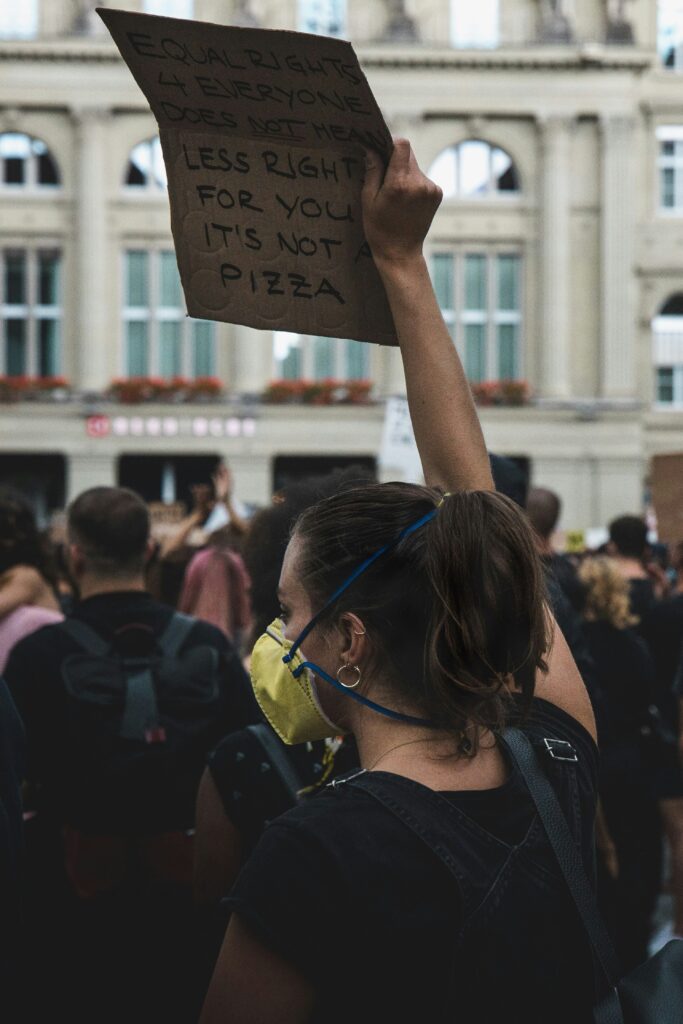 EQUAL RIGHTS
4 EVERYONE
DOES NOT MEAN
LESS RIGHT
FOR YOU
IT'S NOT A
PIZZA